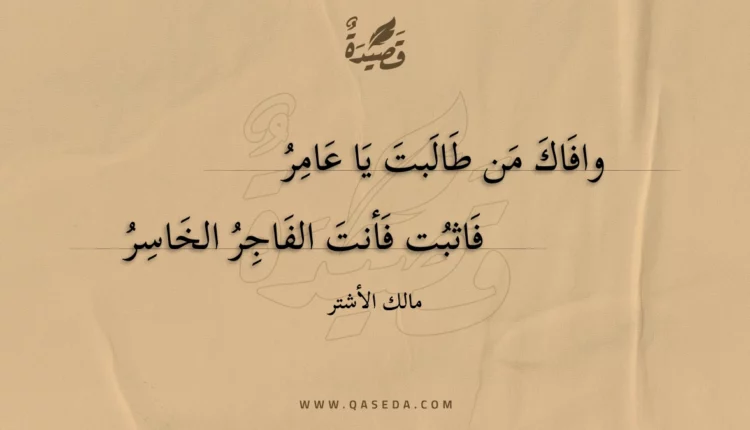 قَصِيْدَةٌ
وافَاكَ مَن طَالَبتَ يَا عَامِرُ
فَاثبُت فَأنتَ الفَاجِرُ الخَاسِرُ
مالك الأشتر
WWW.QASEDA.COM